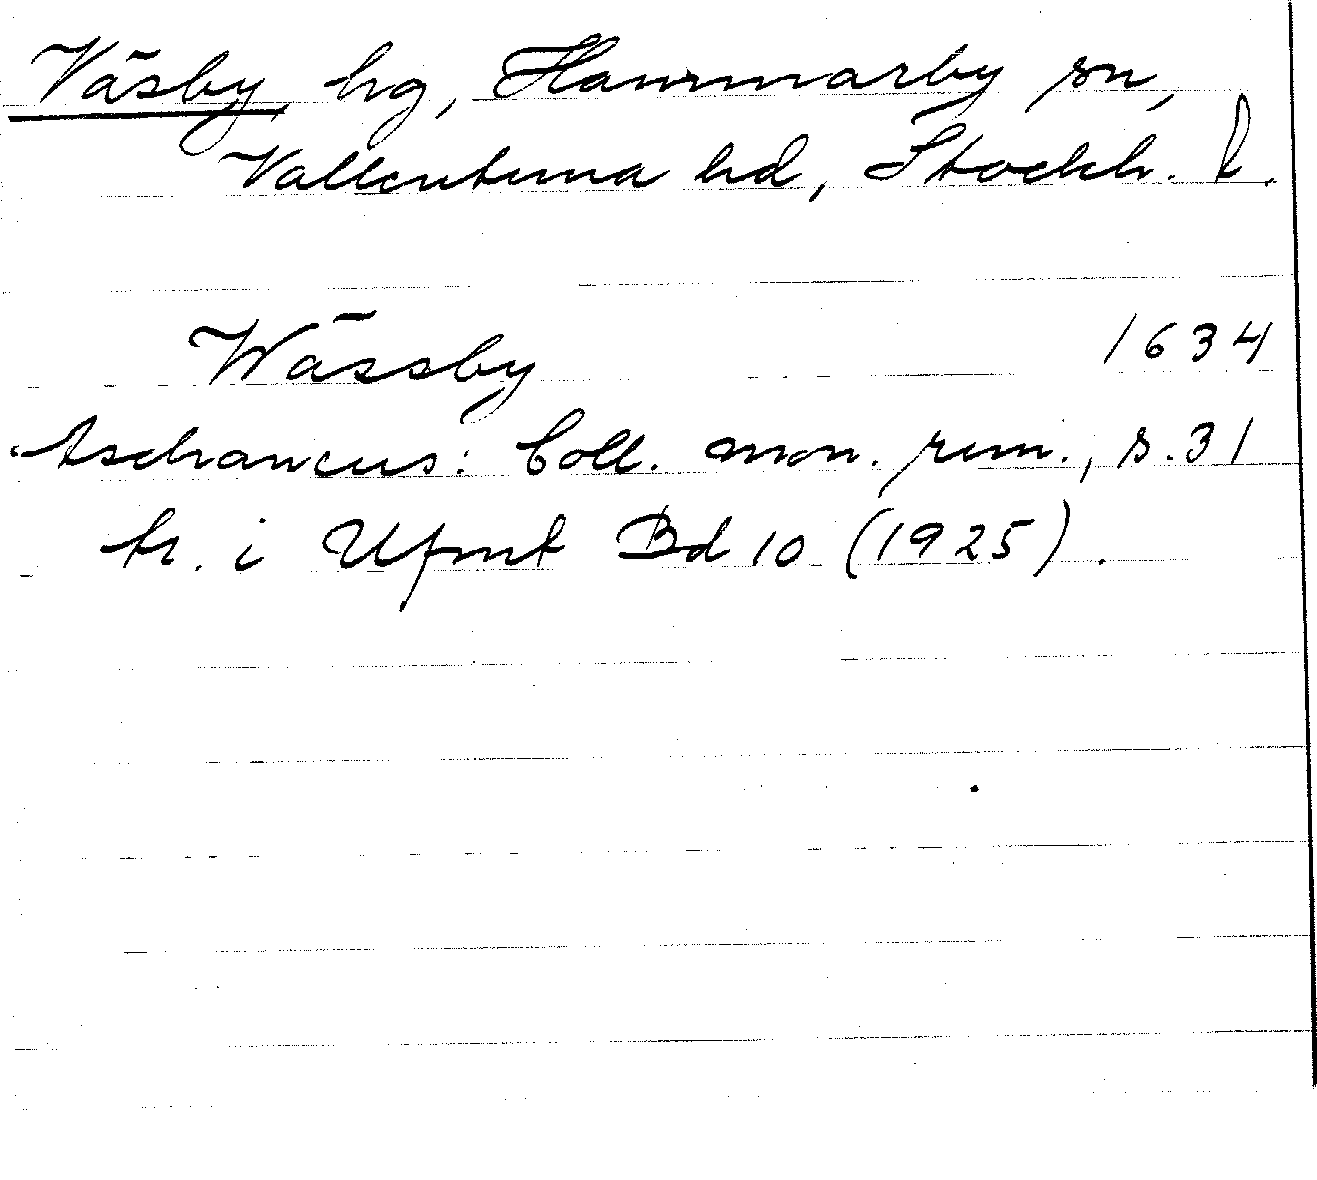 Väsby, hg, Hammarby sn,
Vallentuna hd, Stockh. l.
Wässby 1634
Aschaneus: Coll. mon. run., s. 31
tr. i Ufmt Bd 10 (1925).